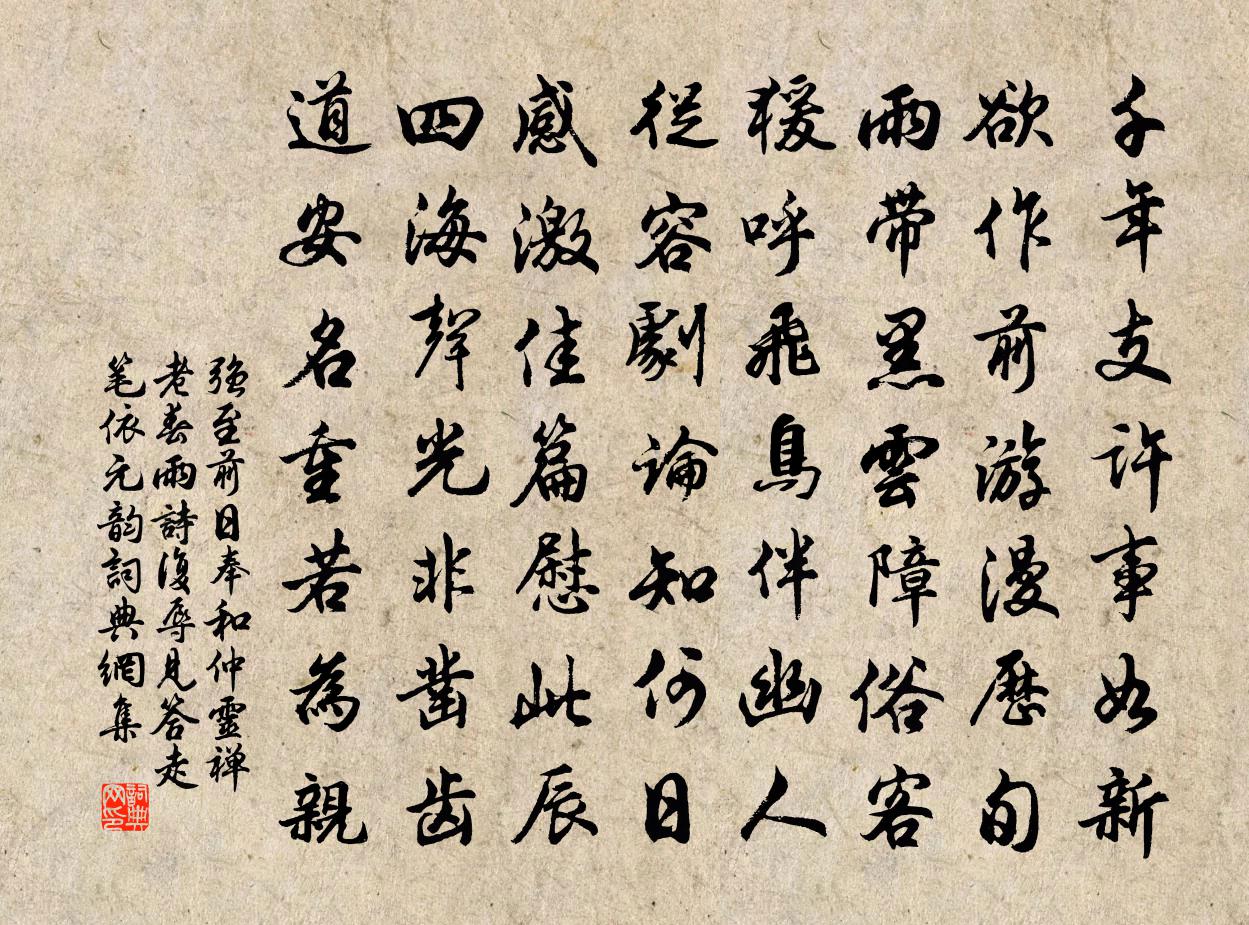 千年支許事如新
欲作前游漫歷旬
雨帶黑雲障俗客
猨呼飛鳥伴幽人
從容劇論知何日
感激佳篇慰此辰
四海聲光非鑿齒
道安名重若為親
強至前日奉和仲靈禅
老春雨詩復辱見答走
笔依元韵詞典網集
詞典网印